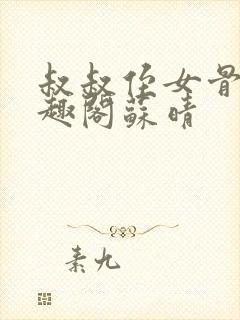 叔叔侄女骨
趣阁蘇晴
素九